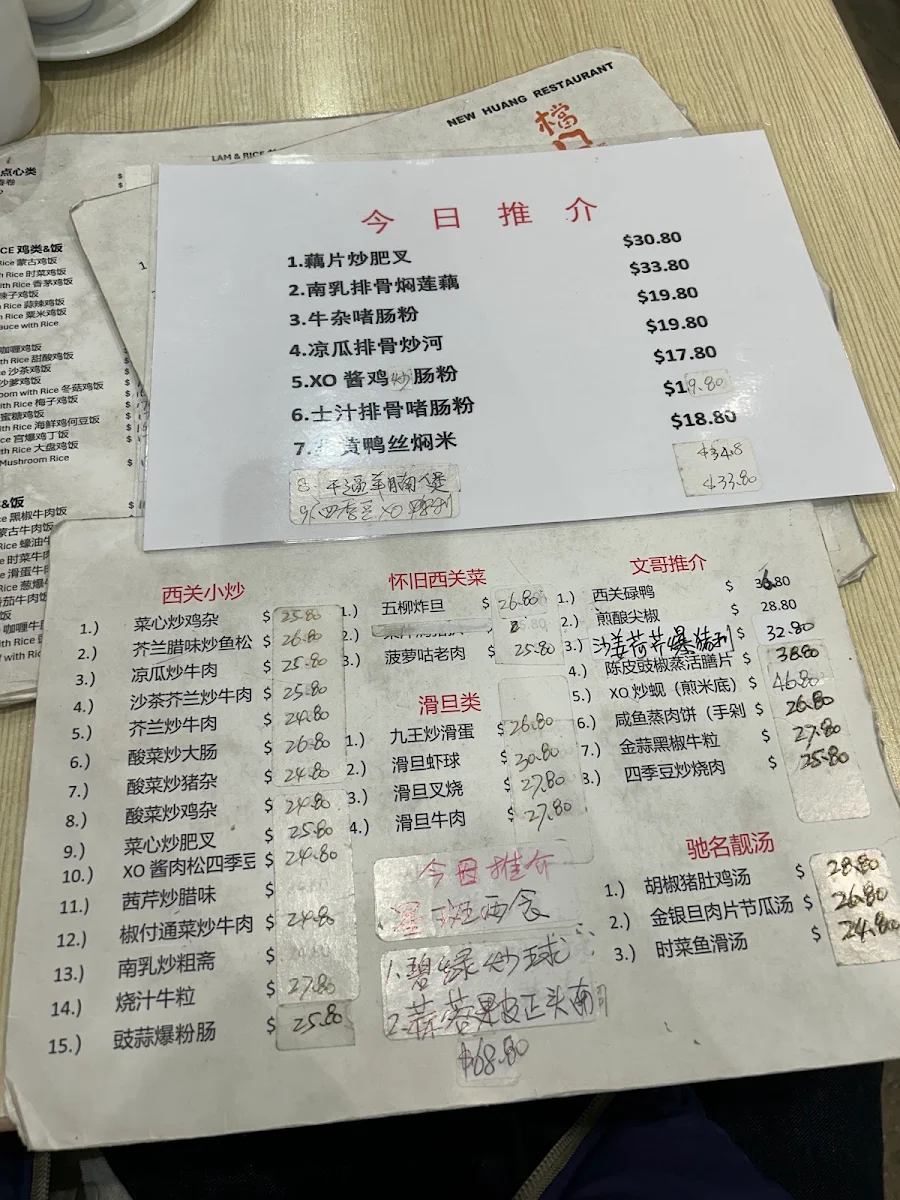 NEW HUANG RESTAURANT
檔
LAM & RICE
点心类
今日推介
1.藕片炒肥叉 $30.80
2.南乳排骨焖莲藕 $33.80
3.牛杂啫肠粉 $19.80
4.凉瓜排骨炒河 $19.80
5.XO 酱鸡炒肠粉 $17.80
6.士汁排骨啫肠粉 $19.80
7. 黄鸭丝焖米 $18.80
8. 羊腩煲 $34.8
9. 四季豆XO $33.80
CE 鸡类&饭
Rice 蒙古鸡饭
h Rice 时菜鸡饭
Rice 香茅鸡饭
辣子鸡饭
Rice 蒜辣鸡饭
Rice 粟米鸡饭
auce with Rice
咖喱鸡饭
with Rice 甜酸鸡饭
e 沙茶鸡饭
沙爹鸡饭
oom with Rice 冬菇鸡饭
with Rice 梅子鸡饭
蜜糖鸡饭
with Rice 海鲜鸡何豆饭
ce 宫爆鸡丁饭
with Rice 大盘鸡饭
Mushroom Rice
&饭
ce 黑椒牛肉饭
蒙古牛肉饭
Rice 蚝油牛
e 时菜牛肉
e 滑蛋牛肉
Rice 葱爆牛
番茄牛肉饭
咖喱牛
with Rice
西关小炒
1.) 菜心炒鸡杂 $25.80
2.) 芥兰腊味炒鱼松 $26.80
3.) 凉瓜炒牛肉 $25.80
4.) 沙茶芥兰炒牛肉 $25.80
5.) 芥兰炒牛肉 $24.80
6.) 酸菜炒大肠 $26.80
7.) 酸菜炒猪杂 $24.80
8.) 酸菜炒鸡杂 $24.80
9.) 菜心炒肥叉 $25.80
10.) XO 酱肉松四季豆 $24.80
11.) 茜芹炒腊味 $
12.) 椒付通菜炒牛肉 $24.80
13.) 南乳炒粗斋 $
14.) 烧汁牛粒 $27.80
15.) 豉蒜爆粉肠 $25.80
怀旧西关菜
1.) 五柳炸旦 $26.80
2.)
3.) 菠萝咕老肉 $25.80
滑旦类
1.) 九王炒滑蛋 $26.80
2.) 滑旦虾球 $30.80
3.) 滑旦叉烧 $27.80
4.) 滑旦牛肉 $27.80
今日推介
斑两食
1.碧绿炒球
2.蒜蓉果皮正头腩
$68.80
文哥推介
1.) 西关碌鸭 $36.80
2.) 煎酿尖椒 $28.80
3.) 沙姜荷芹爆猪利 $32.80
4.) 陈皮豉椒蒸活膳片 $38.80
5.) XO 炒蚬（煎米底） $46.80
6.) 咸鱼蒸肉饼（手剁 $26.80
7.) 金蒜黑椒牛粒 $27.80
8.) 四季豆炒烧肉 $25.80
驰名靓汤
1.) 胡椒猪肚鸡汤 $28.80
2.) 金银旦肉片节瓜汤 $26.80
3.) 时菜鱼滑汤 $24.80